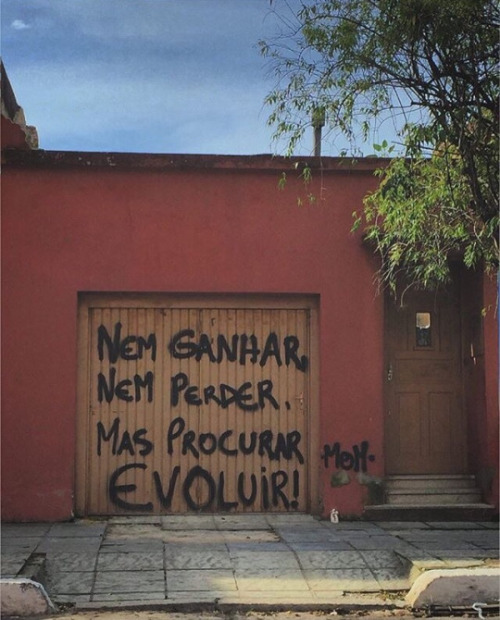 NEM GANHAR,
NEM PERDER.
MAS PROCURAR
EVOLUIR!
MOM.